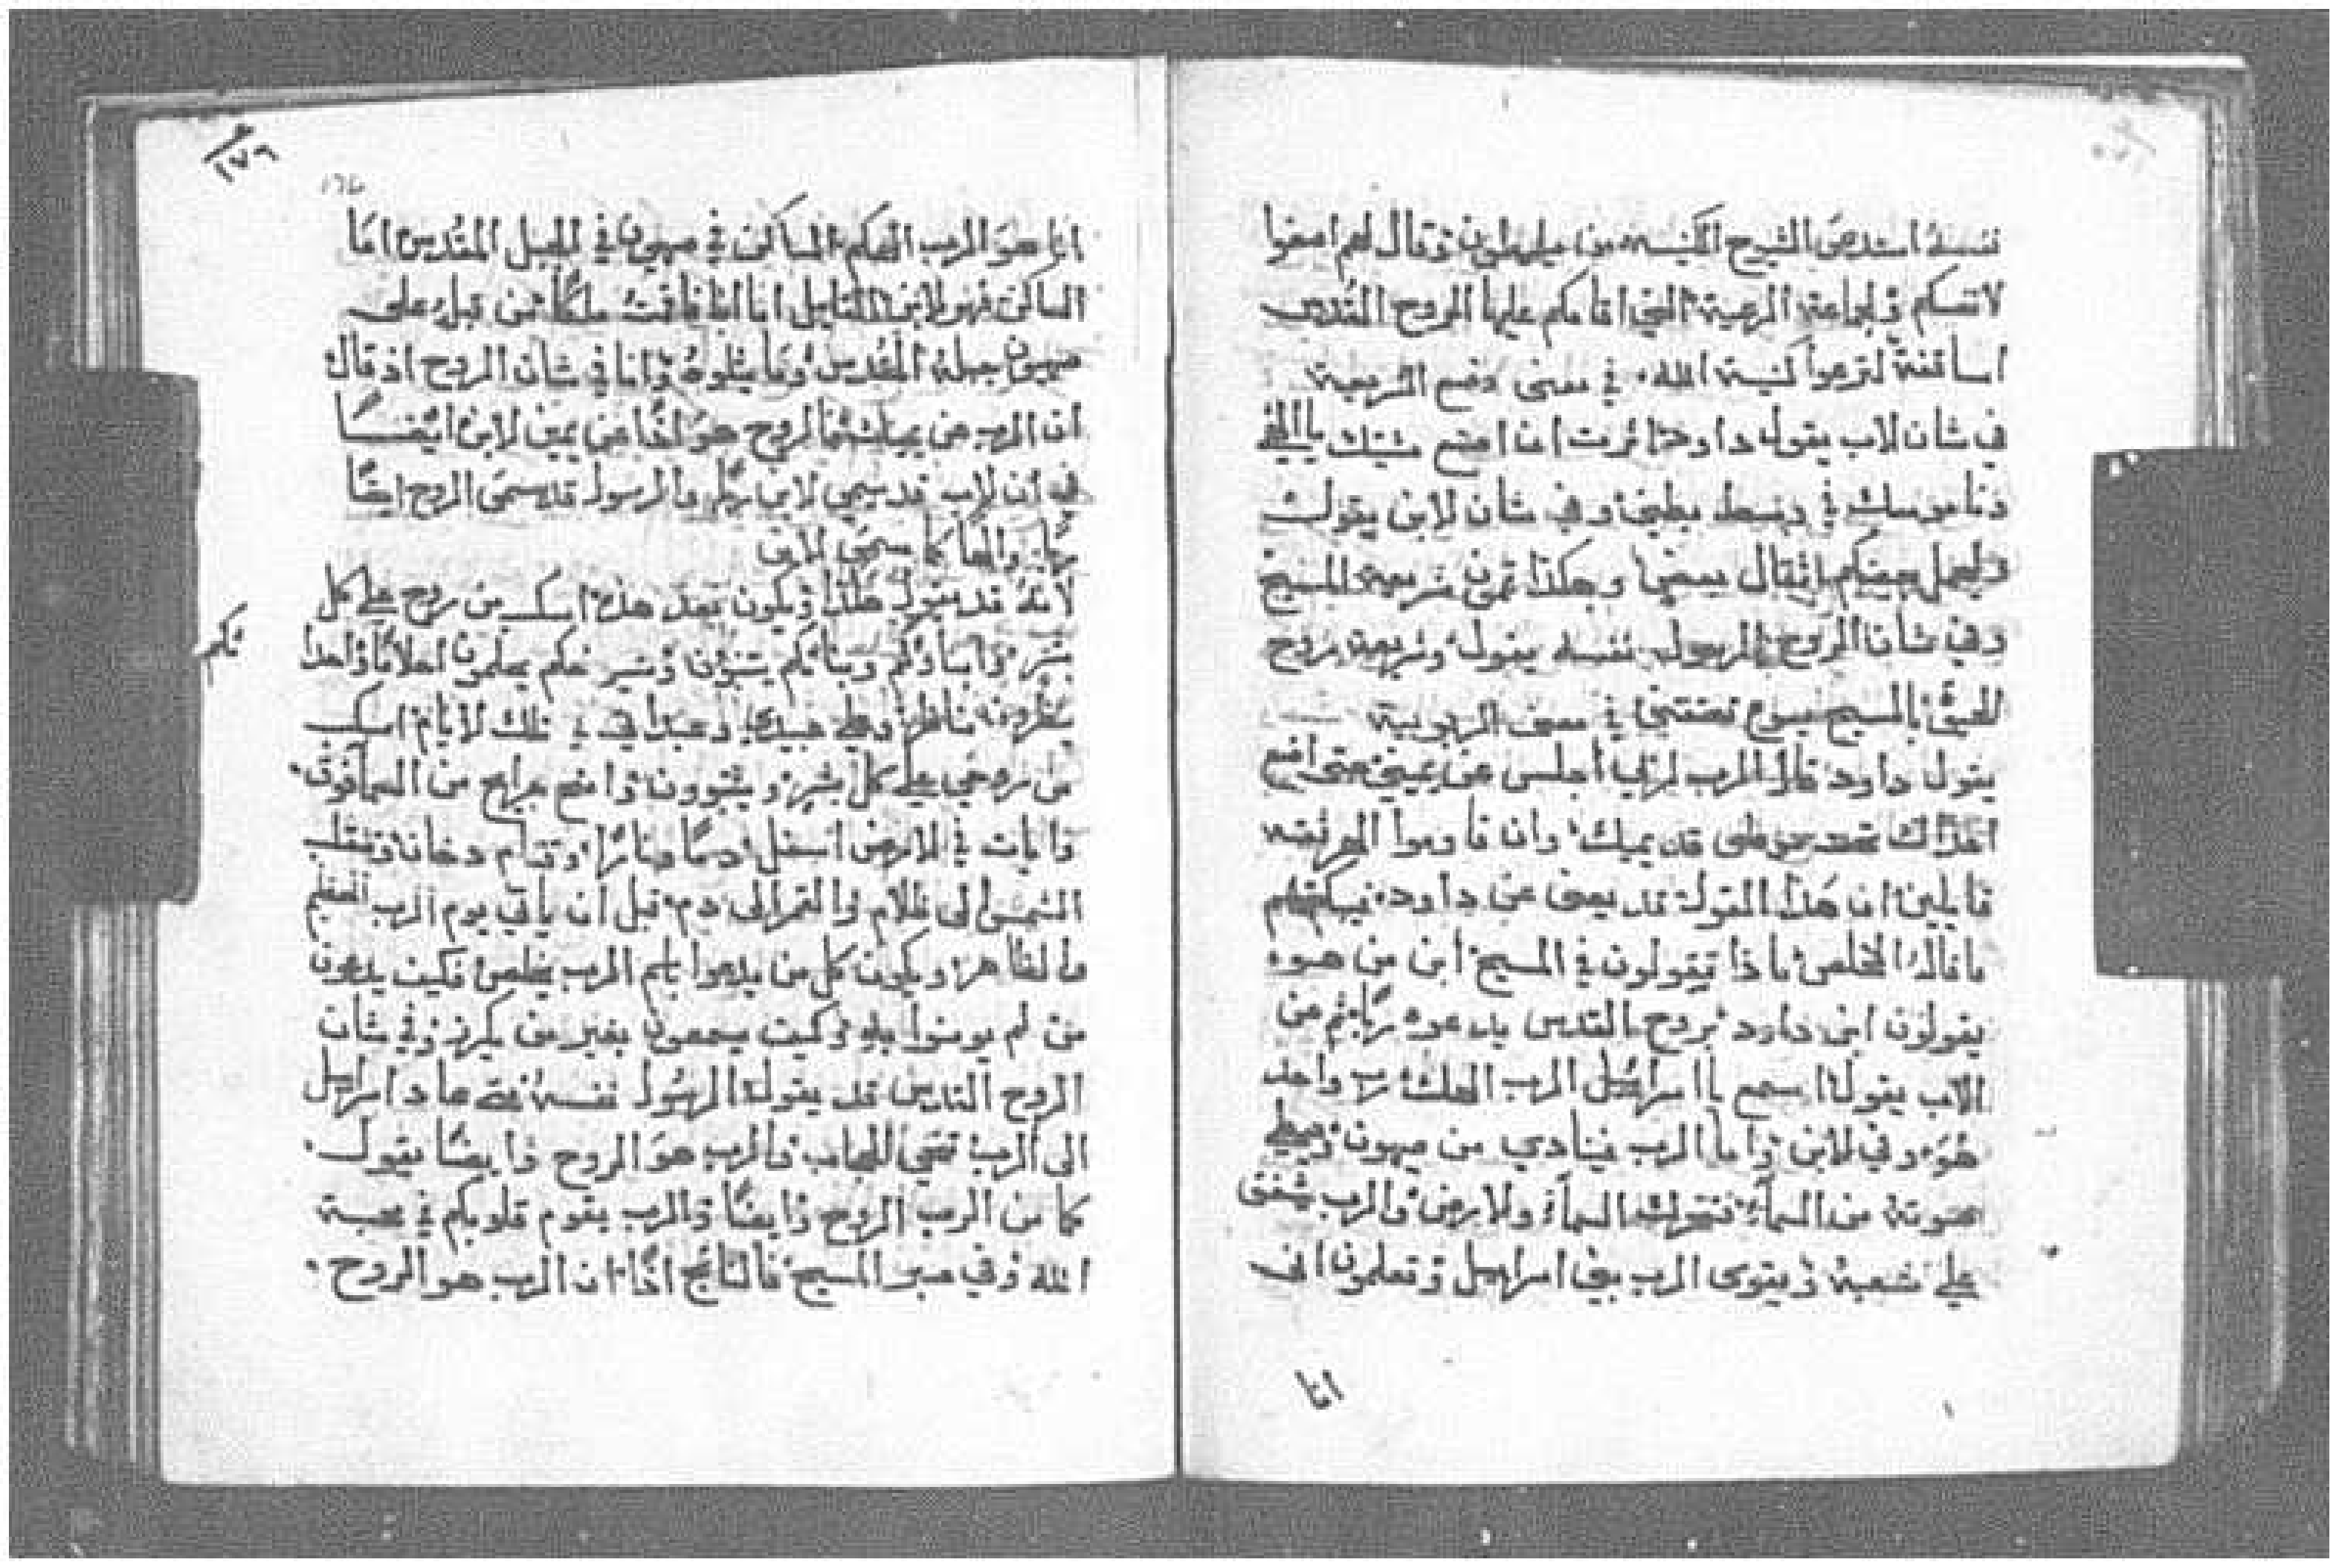 نفسه استدعى الشيوخ الكنيسه من ميليطون وقال لهم اصغوا
لانفسكم ولجماعة الرعية التي اقامكم عليها الروح القدس
اساقفة لترعوا كنيسة الله في معنى وضع الشريعة
في شان الاب يقول داود اثرت ان اصنع مشيتك يا الهي
وناموسك في وسط بطني وفي شان الابن يقول
وليحمل بعضكم اثقال بعض وهكذا تمون شريعة المسيح
وفي شان الروح الرسول نفسه يقول وشريعة روح
بالمسيح يسوع في معنى الربوبية
يقول داود قال الرب لربي اجلس عن يميني حتى اضع
اعداك تحت موطى قدميك وان قاوموا
قايلين ان هذا القول قد يعنى عن داود فيبكتهم
ما قاله المخلص ماذا تقولون في المسيح ابن من هو
يقولون ابن داود بروح القدس يدعوه ربا ثم عن
الاب يقول اسمع يا اسراييل الرب الهك رب واحد
هو وفي الابن واما الرب فينادي من صهيون ويعطي
صوته من السماء فتتحرك السماء والارض والرب يشفق
على شعبه ويتقوى الرب بني اسراييل وتعلمون اني
انا
١٧٦
176
انا هو الرب الهكم الساكن في صهيون في الجبل المقدس اما
الساكن فهو الابن القايل اما انا فاقمت ملكا من قبله على
صهيون جبله المقدس وما يتلوه واما في شان الروح اذ قال
ان الرب عن الروح هو اذا عن يمين الابن ايضا
في ان الاب قد سمى الابن ربا والرسول قد سمى الروح ايضا
ربا والها كما سمى الابن
لانه قد يقول هكذا ويكون بعد هذه اسكب من روح على كل
بشر وابناوكم وبناتكم يتنبون وشيوخكم يحلمون احلاما واحدا
نكم
ينظرون مناظر وعلى عبيدي وعبداتي في تلك الايام اسكب
من روحي على كل بشر ويتنبوون واضع جرايح من السما فوق
وايات في الارض اسفل دما ونارا وقتام دخان وتنقلب
الشمس الى ظلام والقمر الى دم قبل ان ياتي يوم الرب العظيم
والظاهر ويكون كل من يدعوا باسم الرب يخلص فكيف يدعون
من لم يومنوا به وكيف يسمعون بغير من يكرز وفي شان
الروح القدس قد يقول الرسول نفسه متى عاد اسراييل
الى الرب تنحى الحجاب والرب هو الروح وايضا يقول
كما من الرب الروح وايضا والرب يقوم قلوبكم في محبة
الله وفي صبر المسيح فالناتج اذا ان الرب هو الروح